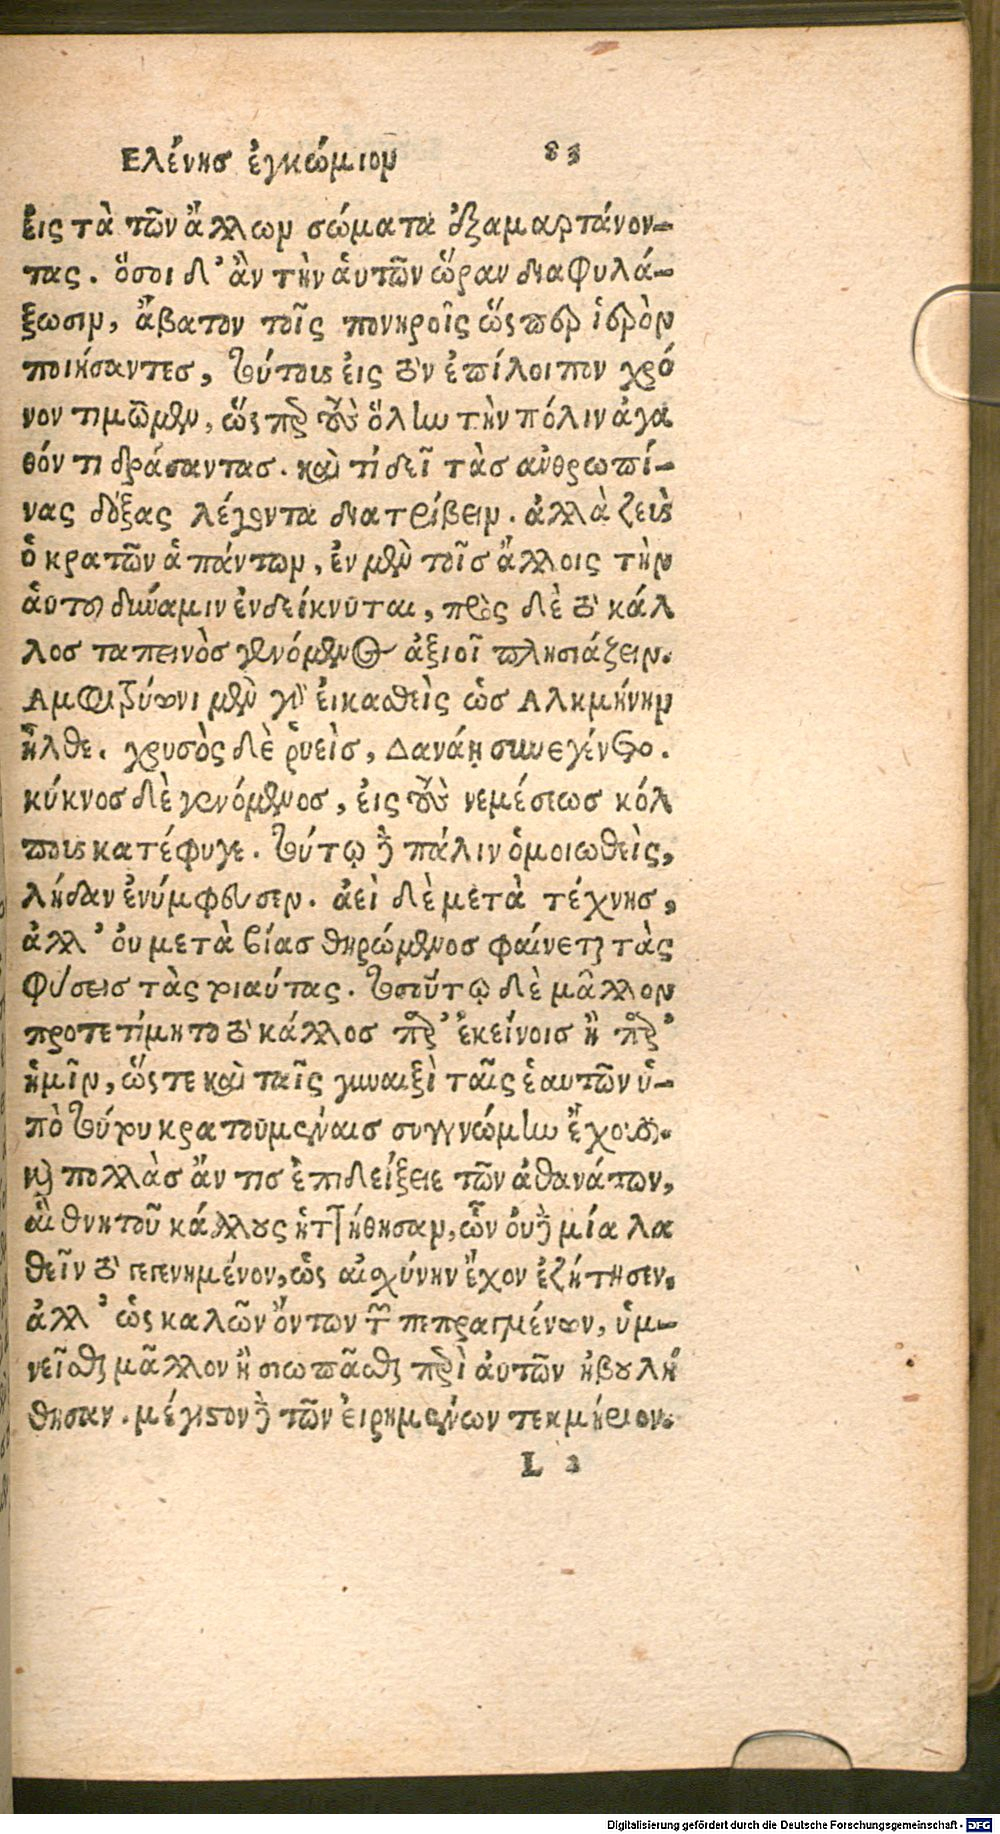 Ελένησ ἐγκώμιον 83
ἐις τὰ τῶν ἄλλων σώματα ἐξαμαρτάνον-
τας. ὅσοι δ' ἂν τὴν ἁυτῶν ὥραν διαφυλά-
ξωσιν, ἄβατον τοῖς πονηροῖς ὥςπερ ἱερὸν
ποιήσαντεσ, τούτους ἐις τὸν ἐπίλοιπον χρό
νον τιμῶμεν, ὥςπερ τοὺς ὅλην τὴν πόλιν ἀγα
θόν τι δράσαντασ. καὶ τί δεῖ τὰσ ἀνθρωπί-
νας δόξας λέγοντα διατρίβειν. ἀλλὰ ζεὺς
ὁ κρατῶν ἁπάντων, ἐν μὲν τοῖσ ἄλλοις τὴν
ἁυτοῦ δύναμιν ἐνδείκνυται, πρὸς δὲ τὸ κάλ
λοσ ταπεινὸσ γενόμενος ἀξιοῖ πλησιάζειν.
Αμφιτρύωνι μὲν γὰρ ἐικασθεὶς ὡσ Αλκμήνην
ἦλθε. χρυσὸς δὲ ῥυεὶσ, Δανάῃ συνεγένετο.
κύκνοσ δὲ γενόμενοσ, ἐις τοὺς νεμέσεωσ κόλ
πους κατέφυγε. τούτῳ δὲ πάλιν ὁμοιωθεὶς,
λήδαν ἐνύμφευσεν. ἀεὶ δὲ μετὰ τέχνησ,
ἀλλ' ὀυ μετὰ βίας θηρώμενοσ φαίνεται τὰς
φύσεισ τὰς τοιαύτας. τοσούτῳ δὲ μᾶλλον
προτετίμητο τὸ κάλλοσ παρ' ἐκείνοισ ἢ παρ'
ἡμῖν, ὥςτε καὶ ταῖς γυναιξὶ ταῖς ἑαυτῶν ὑ-
πὸ τούτου κρατουμέναισ συγγνώμην ἔχουσι.
καὶ πολλὰσ ἄν τισ ἐπιδείξειε τῶν ἀθανάτων,
αἳ θνητοῦ κάλλους ἡττήθησαν, ὧν ὀυδεμία λα
θεῖν τὸ γεγενημένον, ὡς αἰσχύνην ἔχον ἐζήτησεν,
ἀλλ' ὡς καλῶν ὄντων τῶν πεπραγμένων, ὑμ-
νεῖσθαι μᾶλλον ἢ σιωπᾶσθαι περὶ ἀυτῶν ἠβουλή
θησαν. μέγιστον δὲ τῶν ἐιρημένων τεκμήριον.
L 3
Digitalisierung gefördert durch die Deutsche Forschungsgemeinschaft - DFG